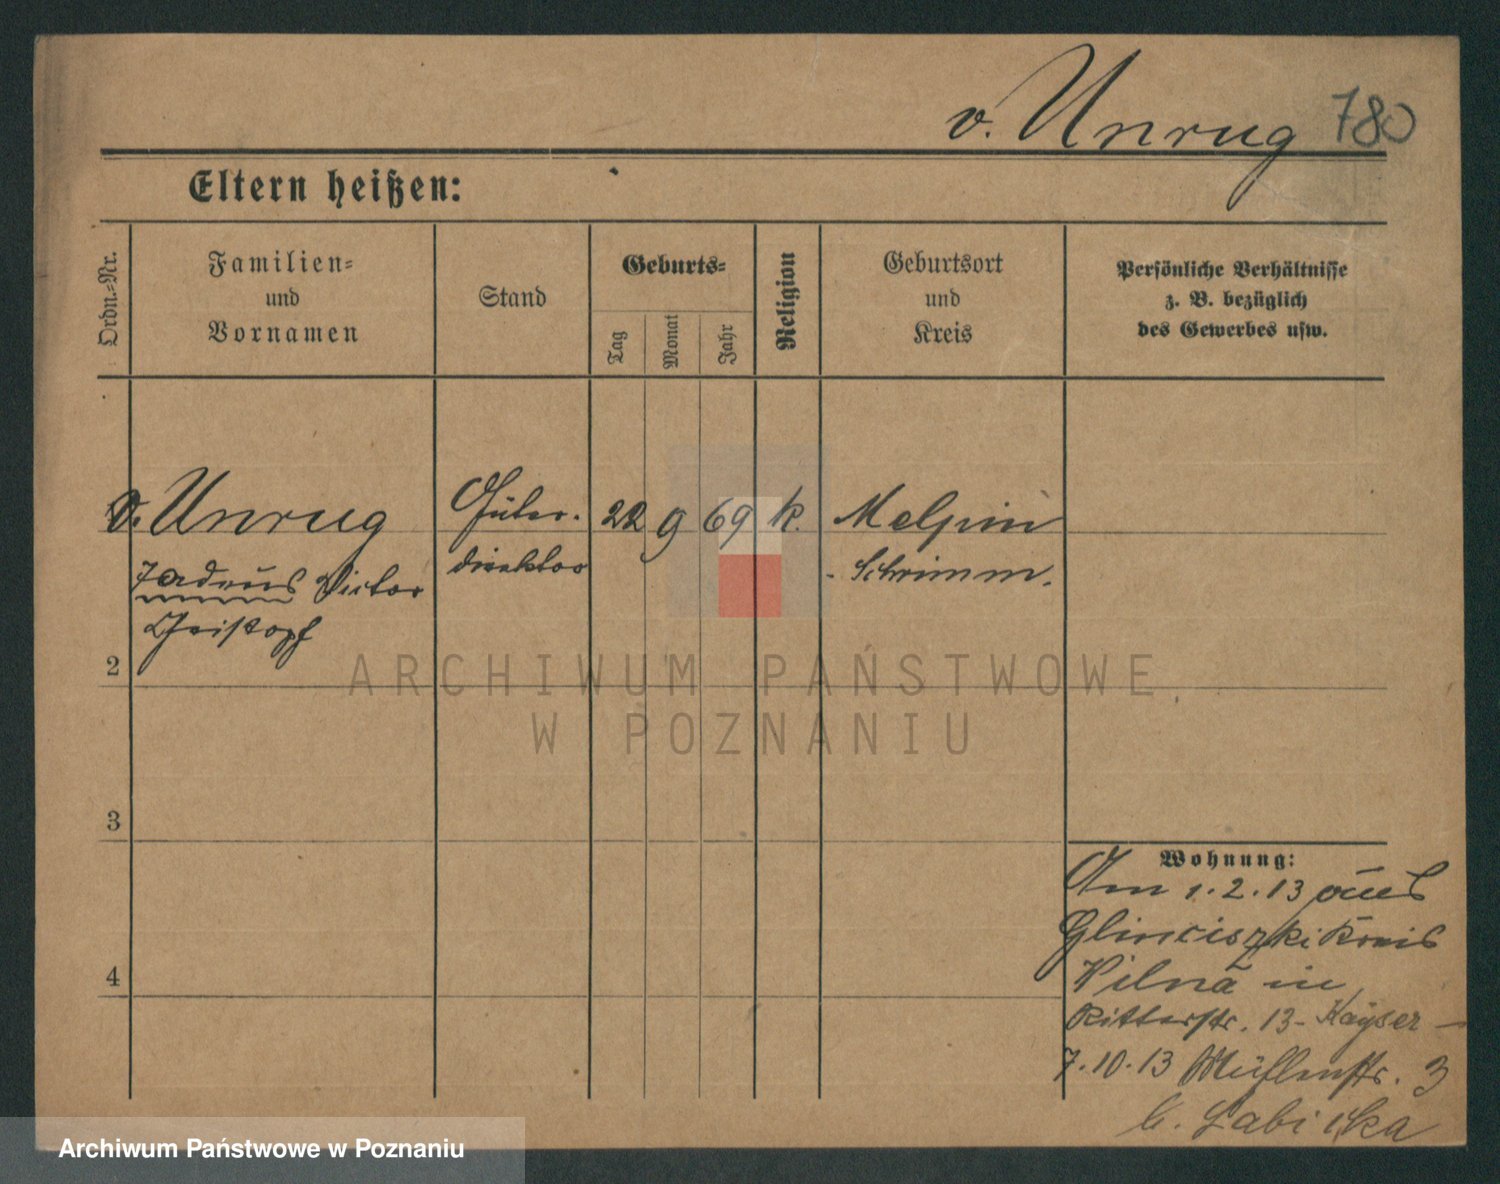 v. Unrug 780
Eltern heißen:
Ordn.-Nr.
Familien-
und
Vornamen
Stand
Geburts-
Tag
Monat
Jahr
Religion
Geburtsort
und
Kreis
Persönliche Verhältnisse
z. B. bezüglich
des Gewerbes usw.
v. Unrug Güter- 22 9 69 k. Melpin
Tadeus Victor direktor Schrimm.
Christoph
2
ARCHIWUM PAŃSTWOWE
W POZNANIU
3
Wohnung:
Am 1.2.13 aus
Glinciszki Kreis
4
Vilna in
Ritterstr. 13 - Kayser -
7.10.13 Mühlenstr. 3
b.
Archiwum Państwowe w Poznaniu